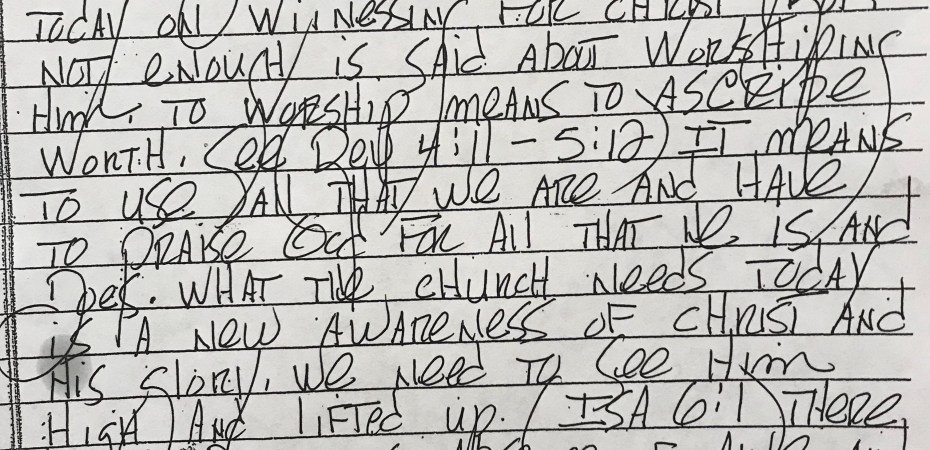 TODAY ON WITNESSING FOR CHRIST
NOT ENOUGH IS SAID ABOUT WORSHIPING
HIM. TO WORSHIP MEANS TO ASCRIBE
WORTH. (SEE REV 4:11 - 5:12) IT MEANS
TO USE ALL THAT WE ARE AND HAVE
TO PRAISE GOD FOR ALL THAT HE IS AND
DOES. WHAT THE CHURCH NEEDS TODAY
IS A NEW AWARENESS OF CHRIST AND
HIS GLORY. WE NEED TO SEE HIM
HIGH AND LIFTED UP. (ISA 6:1) THERE